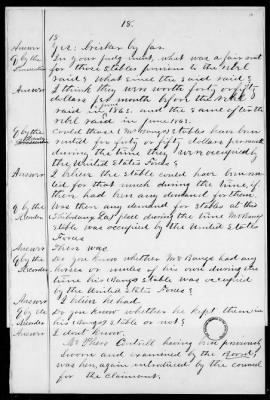 18.
18
Answer Yes: brisker by far.
Q by the In your judgment, what was a fair rent
for those stables previous to the rebel
raid & what since the raid?
Answer I think they were worth forty or fifty
dollars per month before the rebel
raid in June 1863. and the same after the
raid in June 1863.
Q by the Could those (McBangs) stables have been
rented for forty or fifty dollars per month
during the time they were occupied by
the United States Forces?
Answer I believe the stable could have been ren-
ted for that much during the time, if
there had been any demand for them.
Q by the Was there any demand for stables at this
Recorder place during the time
stable was occupied by the United States
Forces
Answer There was.
Q by the Do you know whether Mr Bangs had any
Recorder horses or mules of his own during the
time his stable was occupied
by the United States Forces?
Answer I believe he had.
Q by the Do you know whether he kept them in
Recorder his stable or not?
Answer I don't know.
Mr having been previously
sworn and examined by the Board,
was here again introduced by the counsel
for the claimant.